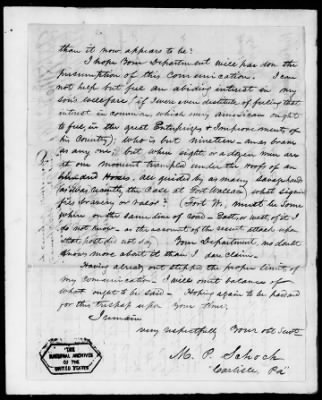 than it now appears to be?
I hope Your Department will pardon the
presumption of this Communication. I can
not help but feel an abiding interest in my
son's wellfare, (if I were even destitute of feeling that
interest in common, which every American ought
to feel, in the great Enterprizes & Improvements of
his Country); who is but nineteen - as brave
as any one; but when eight or a dozen men are
at one moment trampled under the Hoofs of an
hundred Horses, all guided by as many Savage hands
(as was recently the Case at Fort Wallace) what signi-
fies bravery or valor? (Fort W. must be some
where on the same line of road - East, or west of it I
do not know - as the account of the recent attack upon
that post did not say) Your Department, no doubt
knows more about it than I dare claim.
Having already out stepped the proper limit of
my Communication - I will omit balance of
what ought to be said - Hoping again to be pardoned
for this trespass upon Your time,
I remain
very respectfully Your obt Servt
M. P. Schoch
Carlisle, Pa
THE
NATIONAL ARCHIVES
OF THE
UNITED STATES